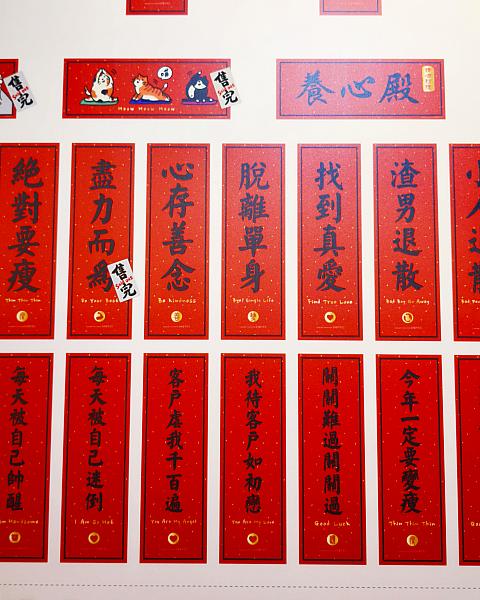 售完
Sold out
Meow Meow Meow
售完
Sold out
養心殿
絕對要瘦
Thin Thin Thin
盡力而為
Do Your Best
售完
Sold out
心存善念
Be Kindness
脫離單身
Bye! Single Life
找到真愛
Find True Love
渣男退散
Bad Boy Go Away
每天被自己帥醒
I Am Handsome
每天被自己迷倒
I Am So Hot
客戶虐我千百遍
You Are My Angel
我待客戶如初戀
You Are My Love
關關難過關關過
Good Luck
今年一定要變瘦
Thin Thin Thin